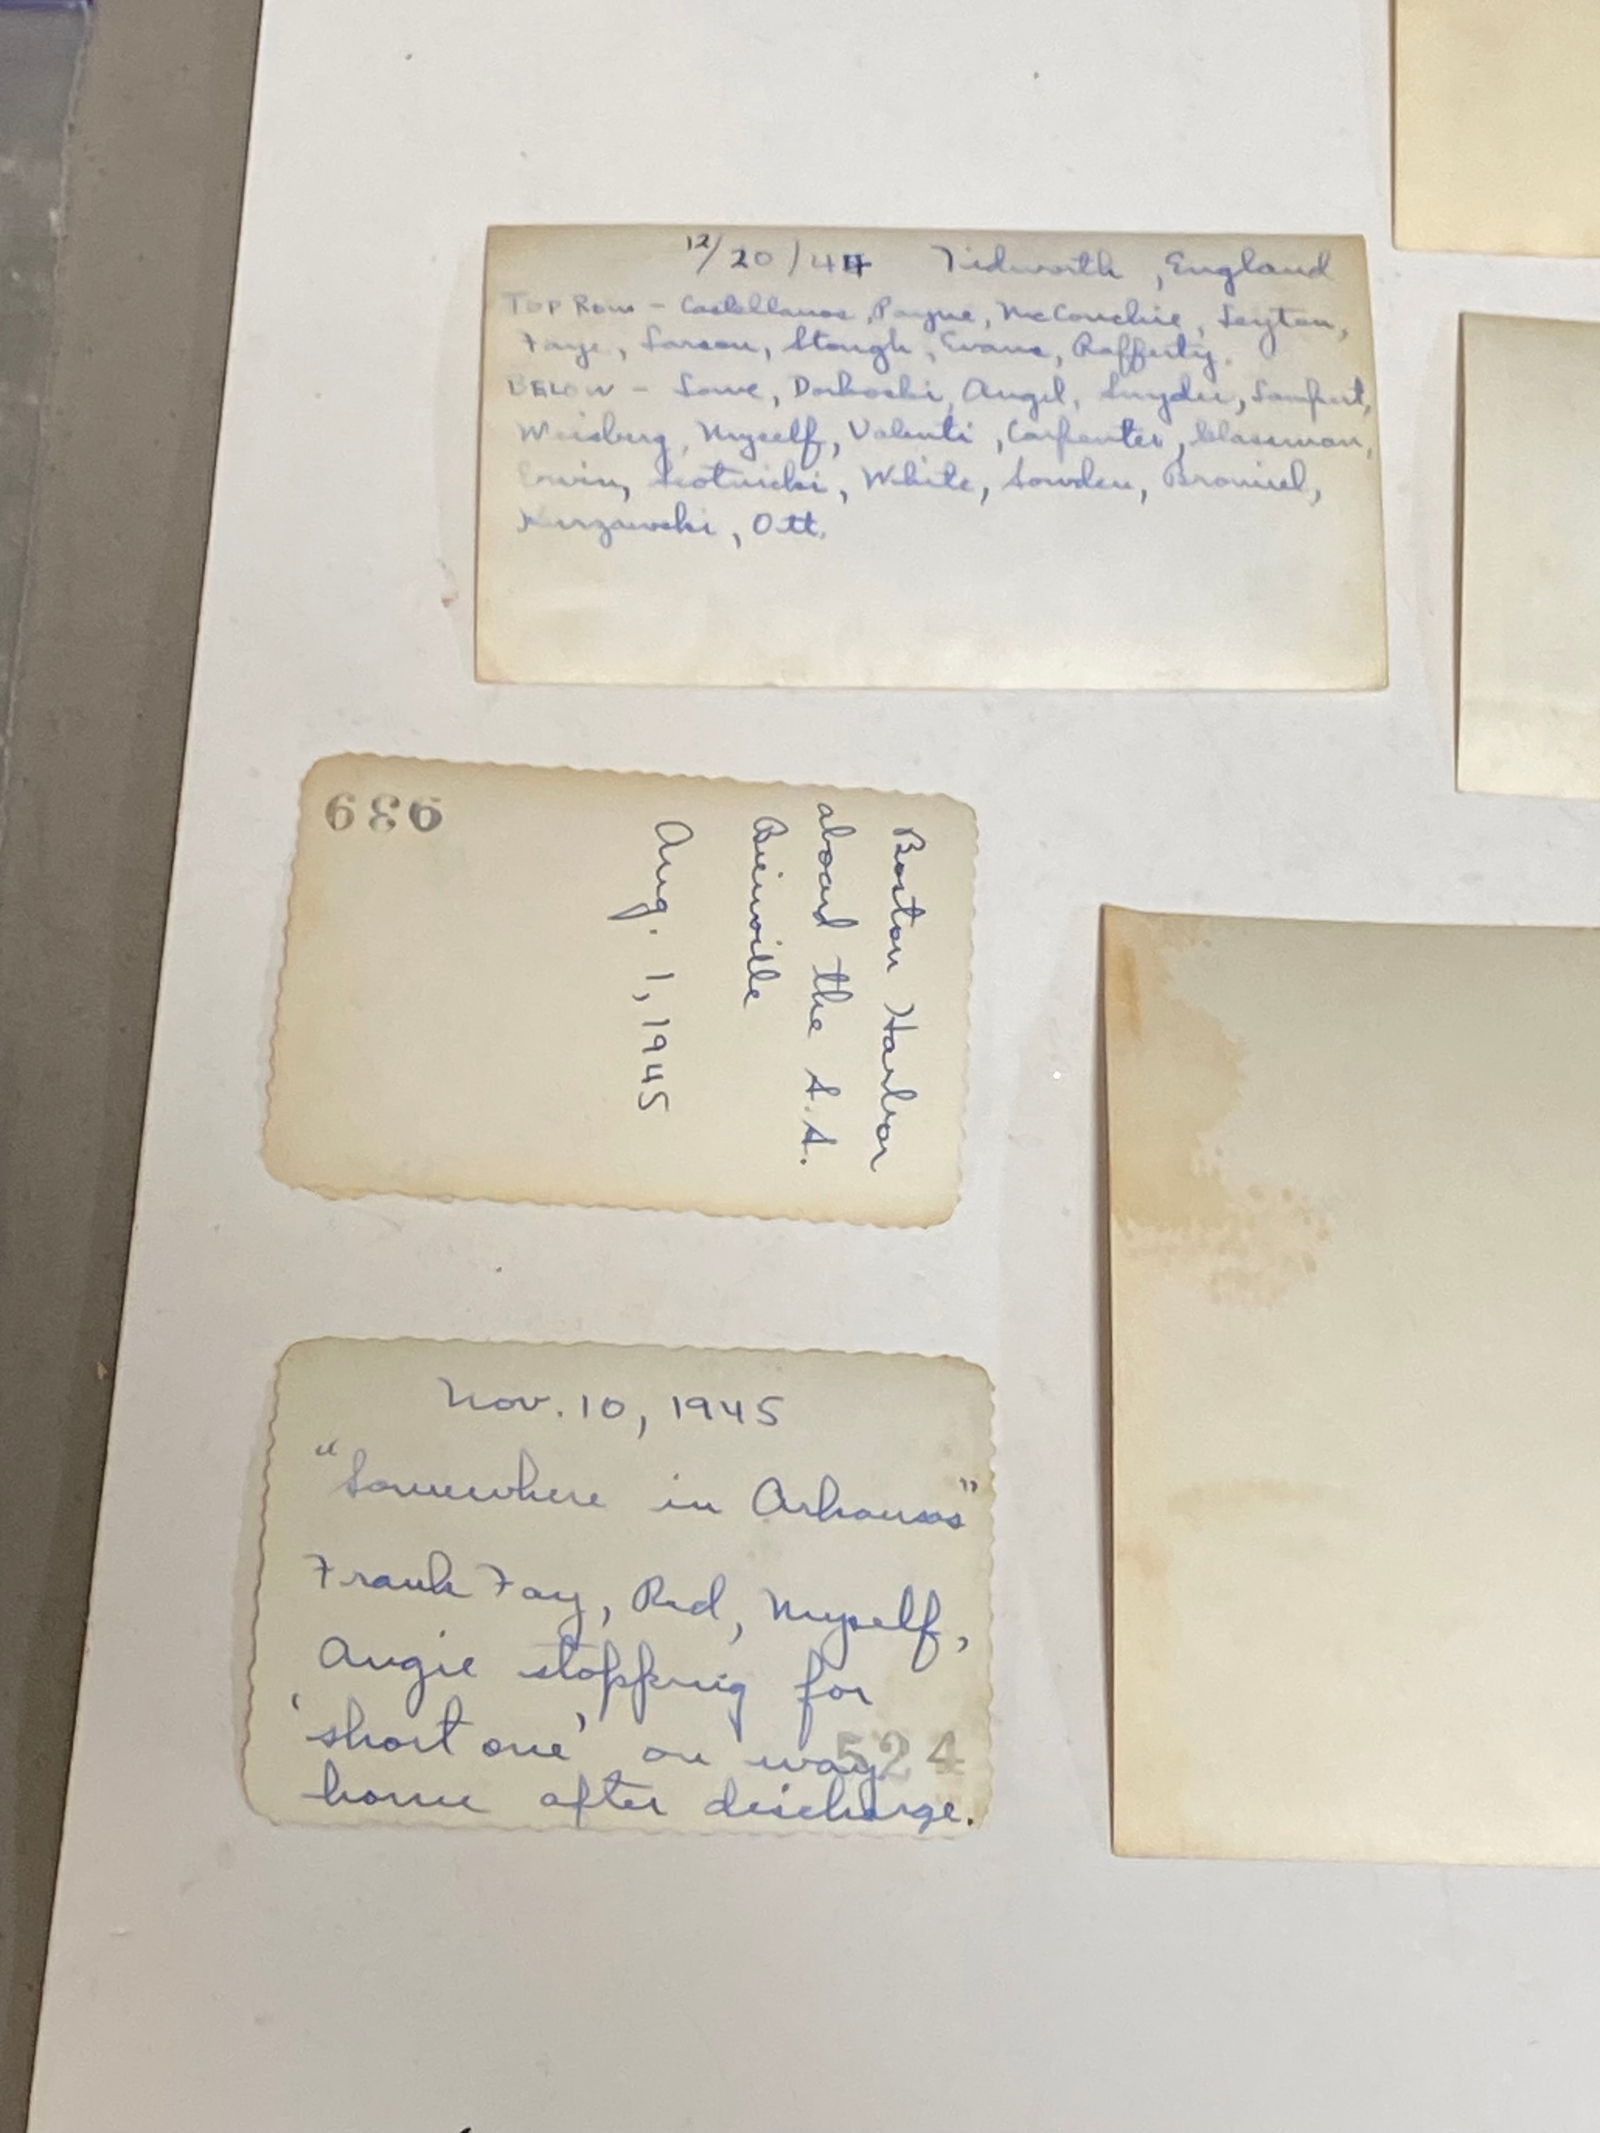 12/20/44 Tidworth, England
TOP ROW - Castellanos, Payne, McConchie, Leyton,
Faye, Larson, Stough, Evans, Rafferty.
BELOW - Lowe, Angel, Snyder, Lampert,
Weisberg, Myself, Valenti, Carpenter, Glassman,
Erwin, Slotnicki, White, Sowden,
Kurzawski, Ott.
939
Boston Harbor
aboard the S.S.
Bienville
Aug. 1, 1945
Nov. 10, 1945
"Somewhere in Arkansas"
Frank Fay, Red, Myself,
Angie stopping for
'short one' on way
524
home after discharge.